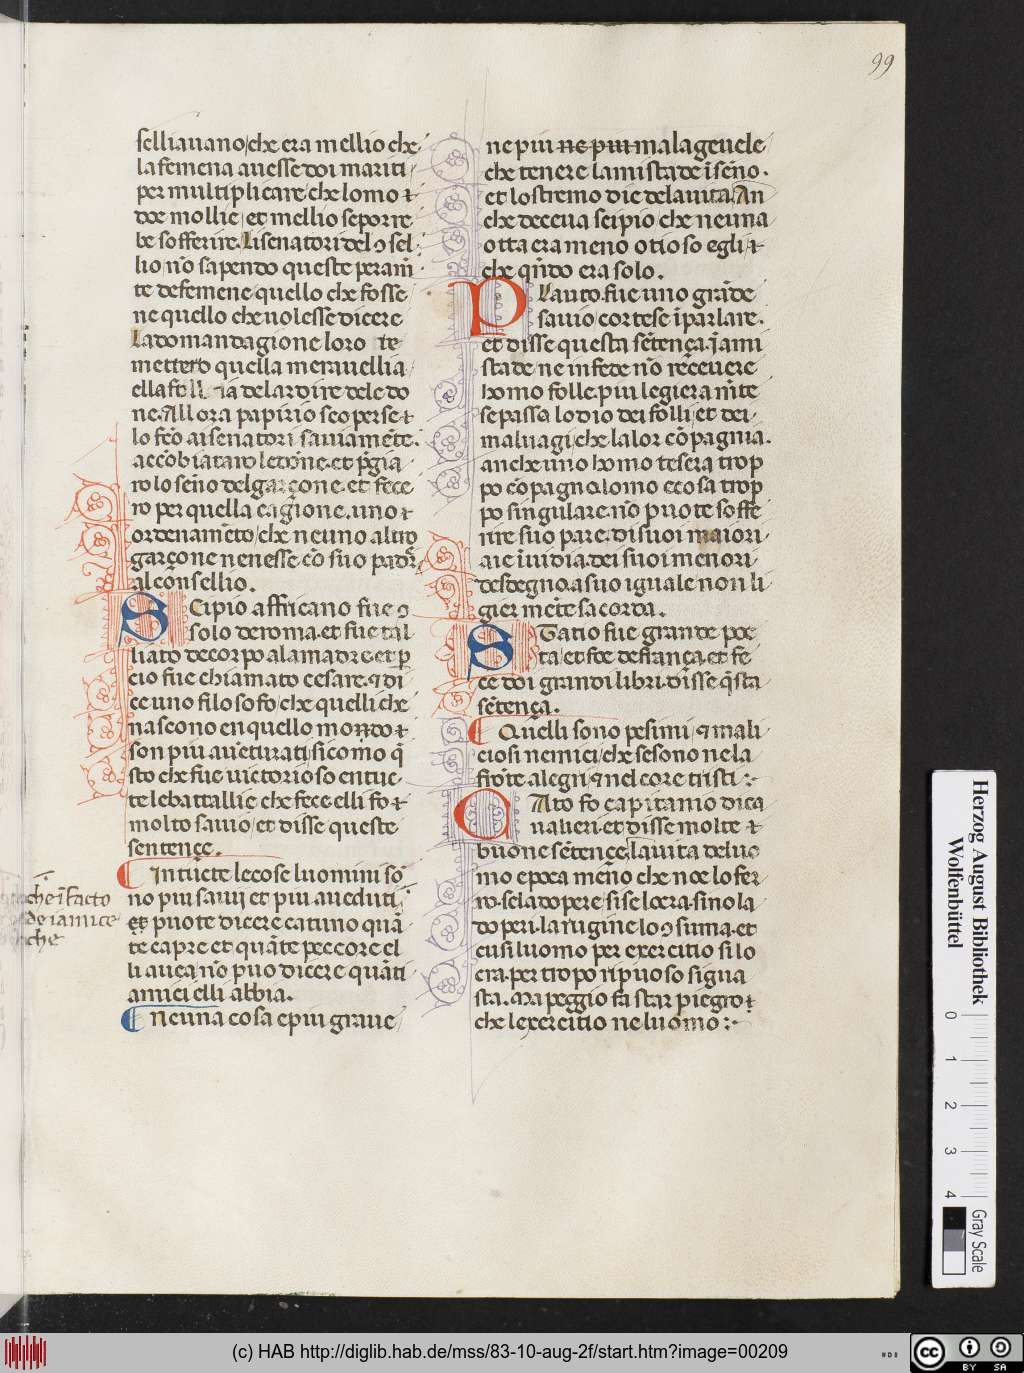 99
selliauano che era mellio che
la femena auesse doi mariti
per multiplicare che lomo ⁊
doe mollie et mellio se porre
be sofferire. Li senatori del ɔsel
lio nõ sapendo queste peram̃
te de femene quello che fosse
ne quello che uolesse dicere
La domandagione loro te
mettero quella merauellia
ella de lardire dele do
ne. Allora papirio scoperse ⁊
lo fc̃o ai senatori sauiamẽte.
accõbiataro le dõne. et p̃gia
ro lo seño del garçone. et fece
ro per quella cagione. uno ⁊
ordenamẽto che neuno altro
garçone nenesse cõ suo padr̃
al consellio.
Scipio affricano fue ɔ
solo de roma. et fue tal
liato de corpo ala madre. et ꝑ
cio fue chiamato cesare. ⁊ di
ce uno filosofo che quelli che
nascono en quello mondo ⁊
son piu aueturati sicomo q̃
sto che fue uictorioso en tuc
te le battallie che fece elli fo ⁊
molto sauio et disse queste
sentençe.
In tucte le cose luomini sõ
no piu sauii et piu aueduti
puote dicere catuno quã
te capre et quãte peccore el
li auea nõ puo dicere quãti
amici elli abbia.
Neuna cosa e piu graue
che ĩ facto
de iamice
che
ne piu ne piu malageuele
che tenere lamistade ĩ seño.
et lo stremo die dela uita. An
che deceua scipio che neuna
otta era meno otioso egli ⁊
che qñdo era solo.
Plauto fue uno grãde
sauio cortese ĩ parlare.
et disse questa sẽtença. q̃ ami
stade ne infede nõ receuere
homo folle. piu legieramẽte
se passa lodio dei folli et dei
maluagi che la lor cõpagnia.
anche uno homo te sera trop
po cõpagno. lomo e cosa trop
po singulare. nõ puote soffe
rire suo pare. di suoi maiori
aie ĩuidia. dei suoi menori
desdegno. a suo iguale non li
gier mẽte sacorda.
Statio fue grande poe
ta et foe de frança. et fe
ce doi grandi libri. disse q̃sta
sẽtença.
Quelli sono pesimi ⁊ mali
ciosi nemici che se sono ne la
frõte alegri ⁊ nel core tristi :-
Cato fo capitanio di ca
ualieri. et disse molte ⁊
buone sẽtençe. la uita del uo
mo e poca meño che noe lo fer
ro. se lad opere si se locra. si no la
dopeti. la rugine lo ɔsuma. et
cusi luomo per exercitio si lo
cra. per troꝑo riposo si gua
sta. Ma peggio fa star piegro ⁊
che lexercitio ne luomo :-
Herzog August Bibliothek
Wolfenbüttel
0 1 2 3 4
Gray Scale
(c) HAB http://diglib.hab.de/mss/83-10-aug-2f/start.htm?image=00209
cc BY SA